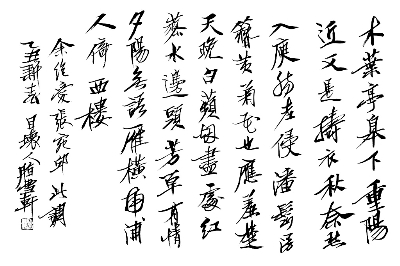 木葉亭皋下重陽
近又是擣衣秋奈愁
入庾腸老侵潘鬢謾
簪黃菊花也應羞楚
天晚白蘋烟盡處紅
蓼水邊頭芳草有情
夕陽無語雁橫南浦
人倚西樓
余愛張宛邱此調
乙丑人軒